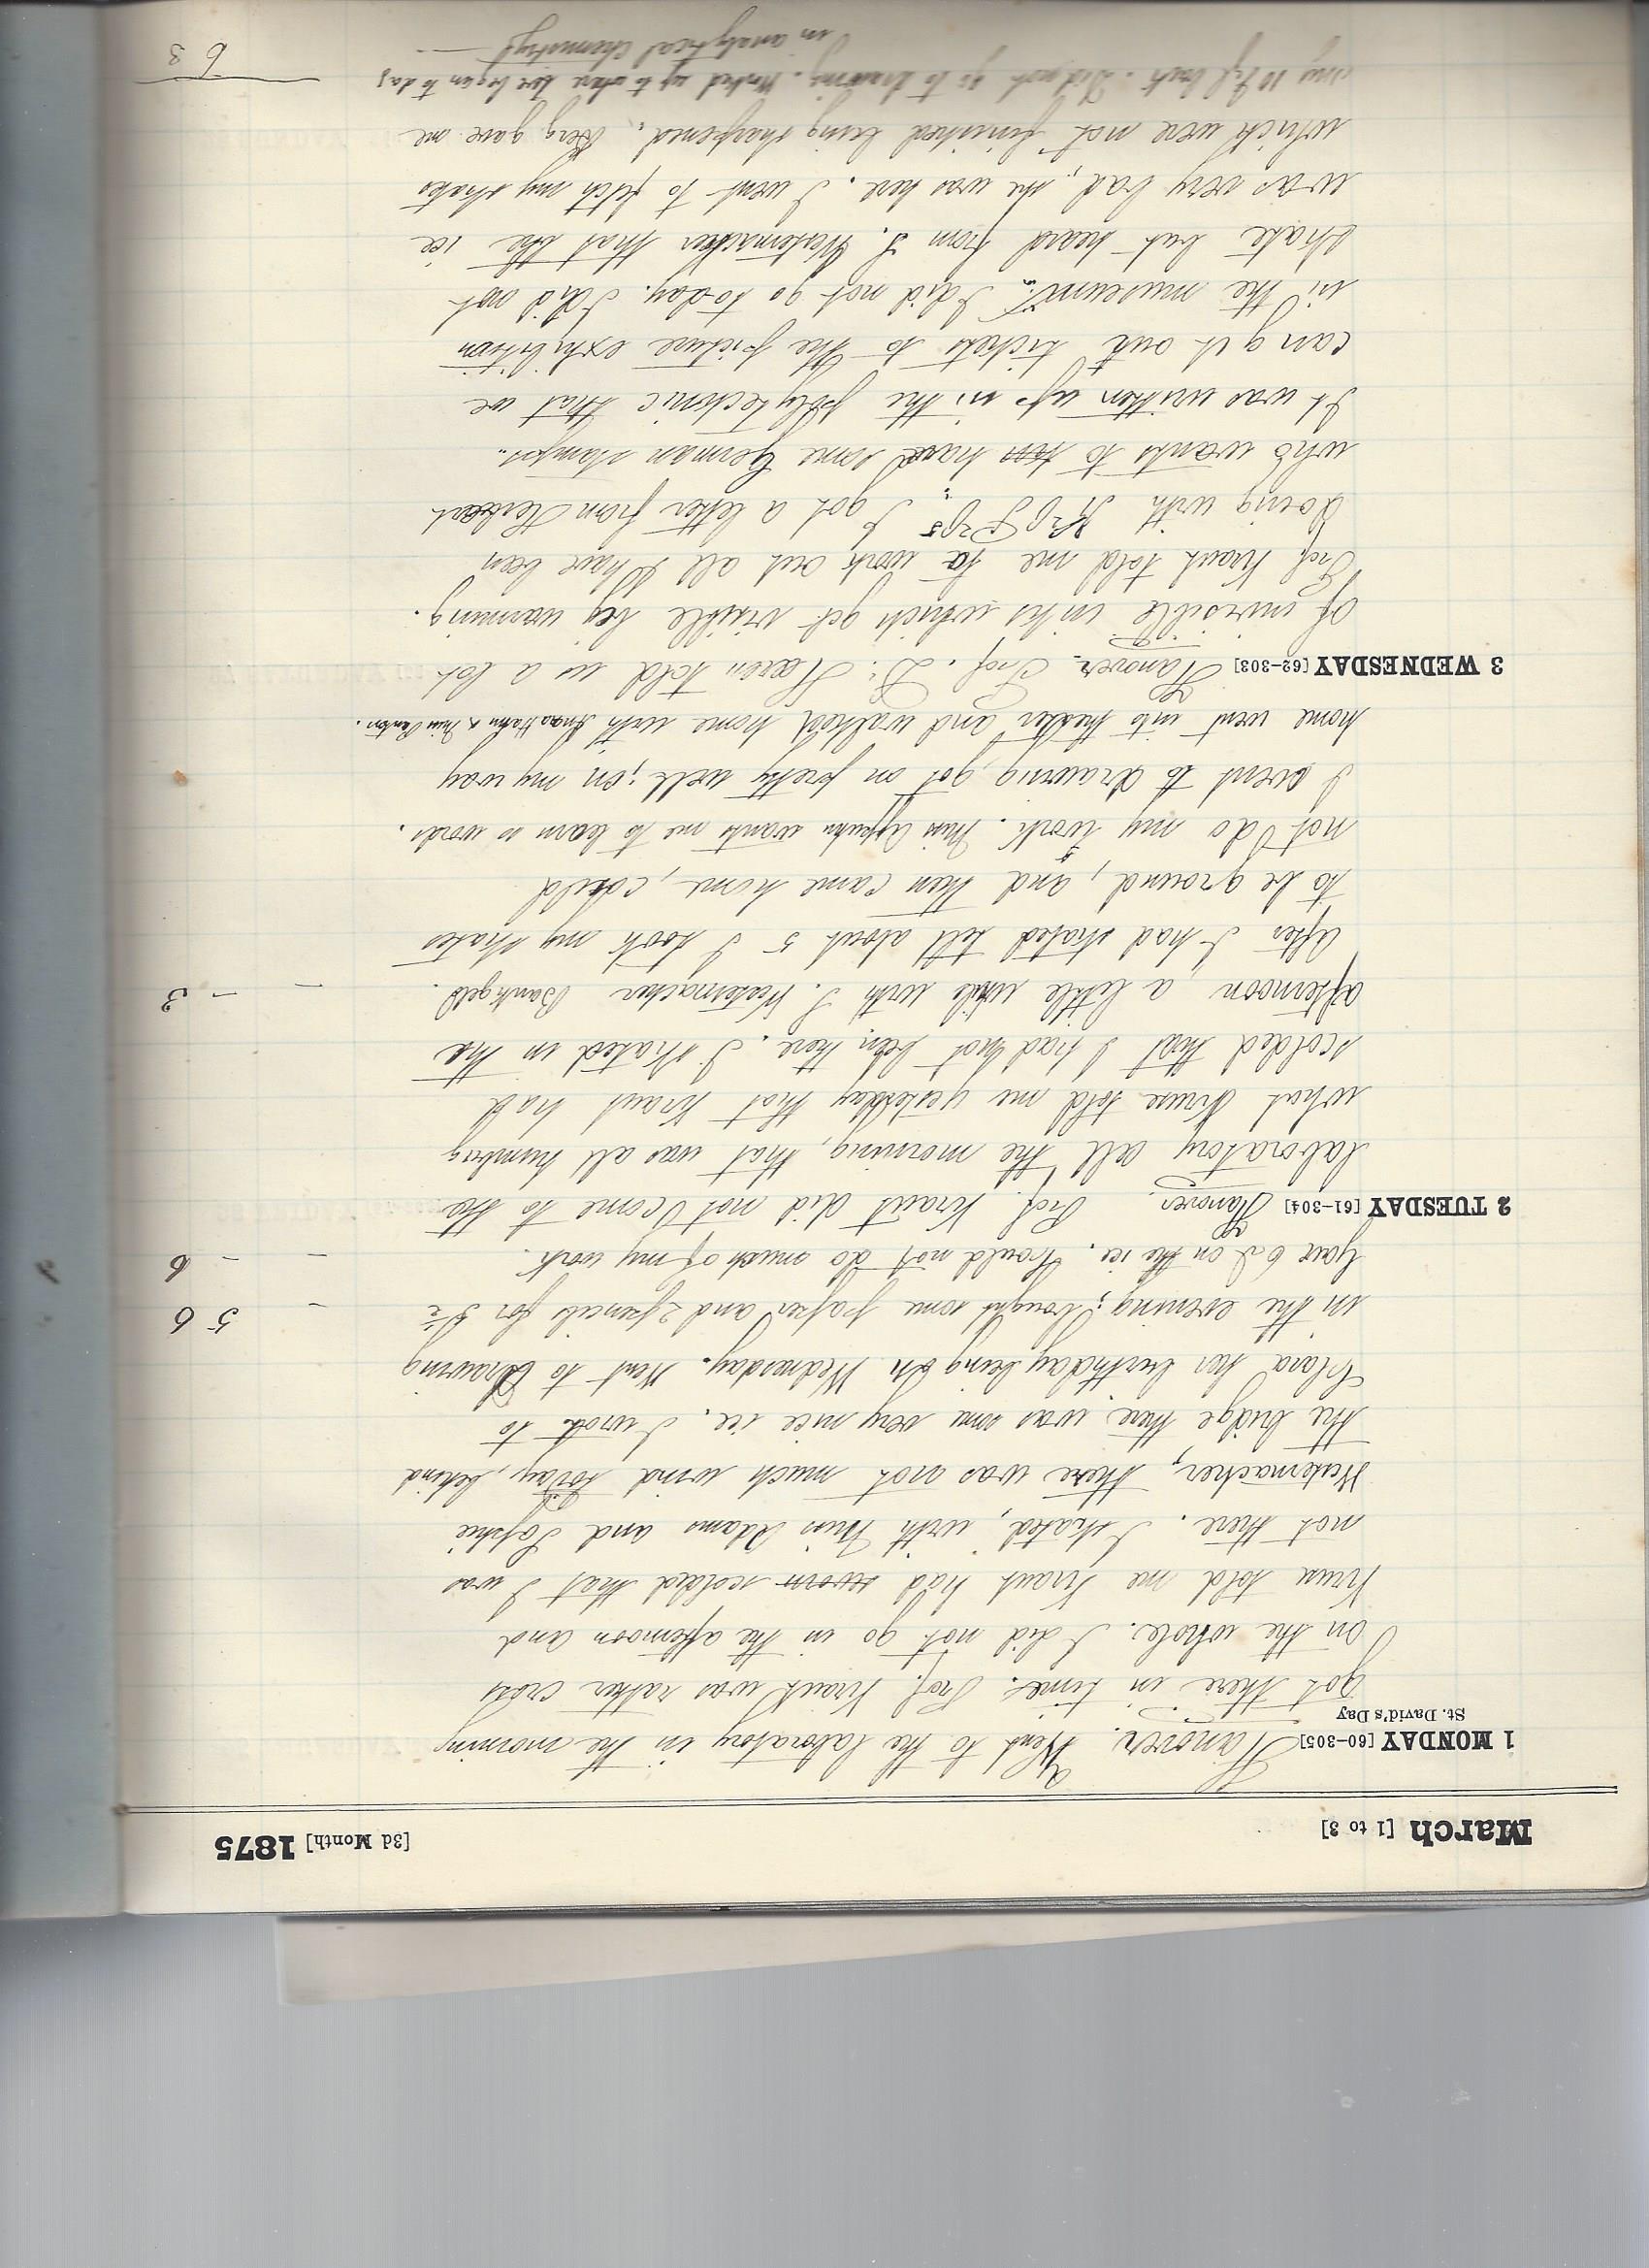 March [1 to 3] [3d Month] 1875
1 MONDAY [60-305] Hanover. Went to the laboratory in the morning
St. David's Day
got there in time. Prof. Kraut was rather cross
on the whole. I did not go in the afternoon and
Kruse told me Kraut had scolded that I was
not there. I skated, with Miss Adams and Sophie
Westernacher, there was not much wind today, behind
the bridge there was some very nice ice. I wrote to
Clara her birthday being on Wednesday. Went to drawing
in the evening; bought some paper and 2 pencils for - 5 6
Gave 6d on the ice. Could not do much of my work. - - 6
2 TUESDAY [61-304] Hanover. Prof. Kraut did not come to the
laboratory all the morning, that was all humbug
what Kruse told me yesterday that Kraut had
scolded that I had not been there. I skated in the
afternoon a little while with S. Westernacher Bankgeld. - - 3
After I had skated till about 5 I took my skates
to be ground, and then came home, could
not do my work. Miss wants me to learn words.
I went to drawing, got on pretty well; on my way
home went into theater and walked home with Hahn & Miss
3 WEDNESDAY [62-303] Hanover. Prof. Dr. Heeren told us a lot
of invisible inks which get visible by warming.
Prof Kraut told me to work out all I have been
doing with K²O P²O⁵. I got a letter from Herbert
who wants to have some German stamps.
It was written up in the polytechnic that we
can get out tickets to the picture exhibition
in the museum. I did not go today. I did not
skate but heard from S. Westernacher that the ice
was very bad, she was here. I went to fetch my skates
which were not finished being sharpened. Berg gave me
my back. Did not go to drawing. Worked up to where we began to day
in analytical chemistry. 6 3